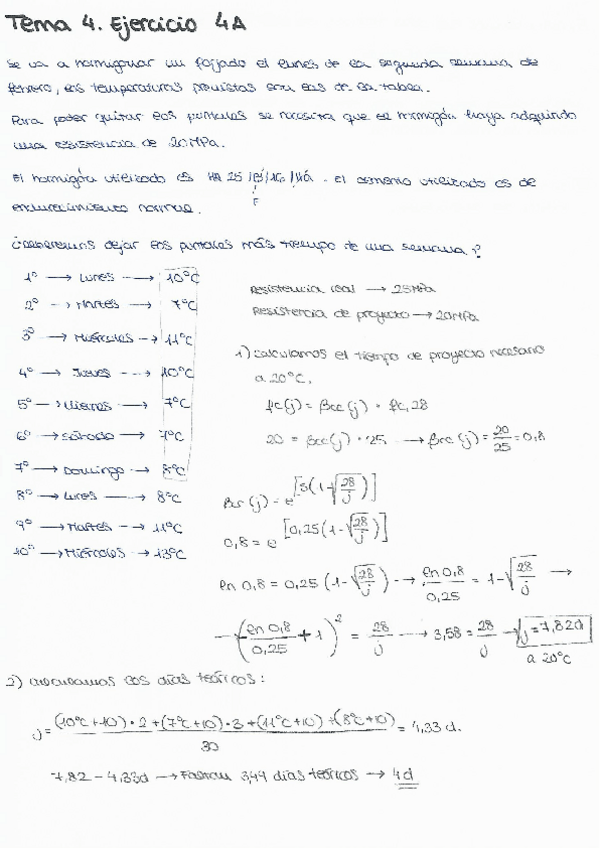 Tema 4. Ejercicio 4A
Se va a hormigonar un forjado el lunes de la segunda semana de
febrero, las temperaturas previstas son las de la tabla.
Para poder quitar los puntales se necesita que el hormigón haya adquirido
una resistencia de 20MPa.
El hormigón utilizado es HA 25 /B/16/IIa. El cemento utilizado es de
F
endurecimiento normal.
¿Deberemos dejar los puntales más tiempo de una semana?
1º → Lunes → 10ºC
2º → Martes → 7ºC
3º → Miércoles → 11ºC
4º → Jueves → 10ºC
5º → Viernes → 7ºC
6º → Sábado → 7ºC
7º → Domingo → 8ºC
8º → Lunes → 8ºC
9º → Martes → 11ºC
10º → Miércoles → 13ºC
Resistencia real → 25MPa
Resistencia de proyecto → 20MPa
1) Calculamos el tiempo de proyecto necesario
a 20ºC.
fc(j) = βcc(j) · fc,28
20 = βcc(j) · 25 → βcc(j) = 20/25 = 0,8
βcc(j) = e^[s(1-√(28/j))]
0,8 = e^[0,25(1-√(28/j))]
ln 0,8 = 0,25 (1-√(28/j)) → ln 0,8/0,25 = 1-√(28/j) →
-(ln 0,8/0,25 + 1)² = 28/j → 3,58 = 28/j → j = 7,82d
a 20ºC
2) Calculamos los días teóricos:
j = (10ºC+10)·2+(7ºC+10)·3+(11ºC+10)+(8ºC+10)/30 = 4,33 d.
7,82 - 4,33d → Faltan 3,49 días teóricos → 4d